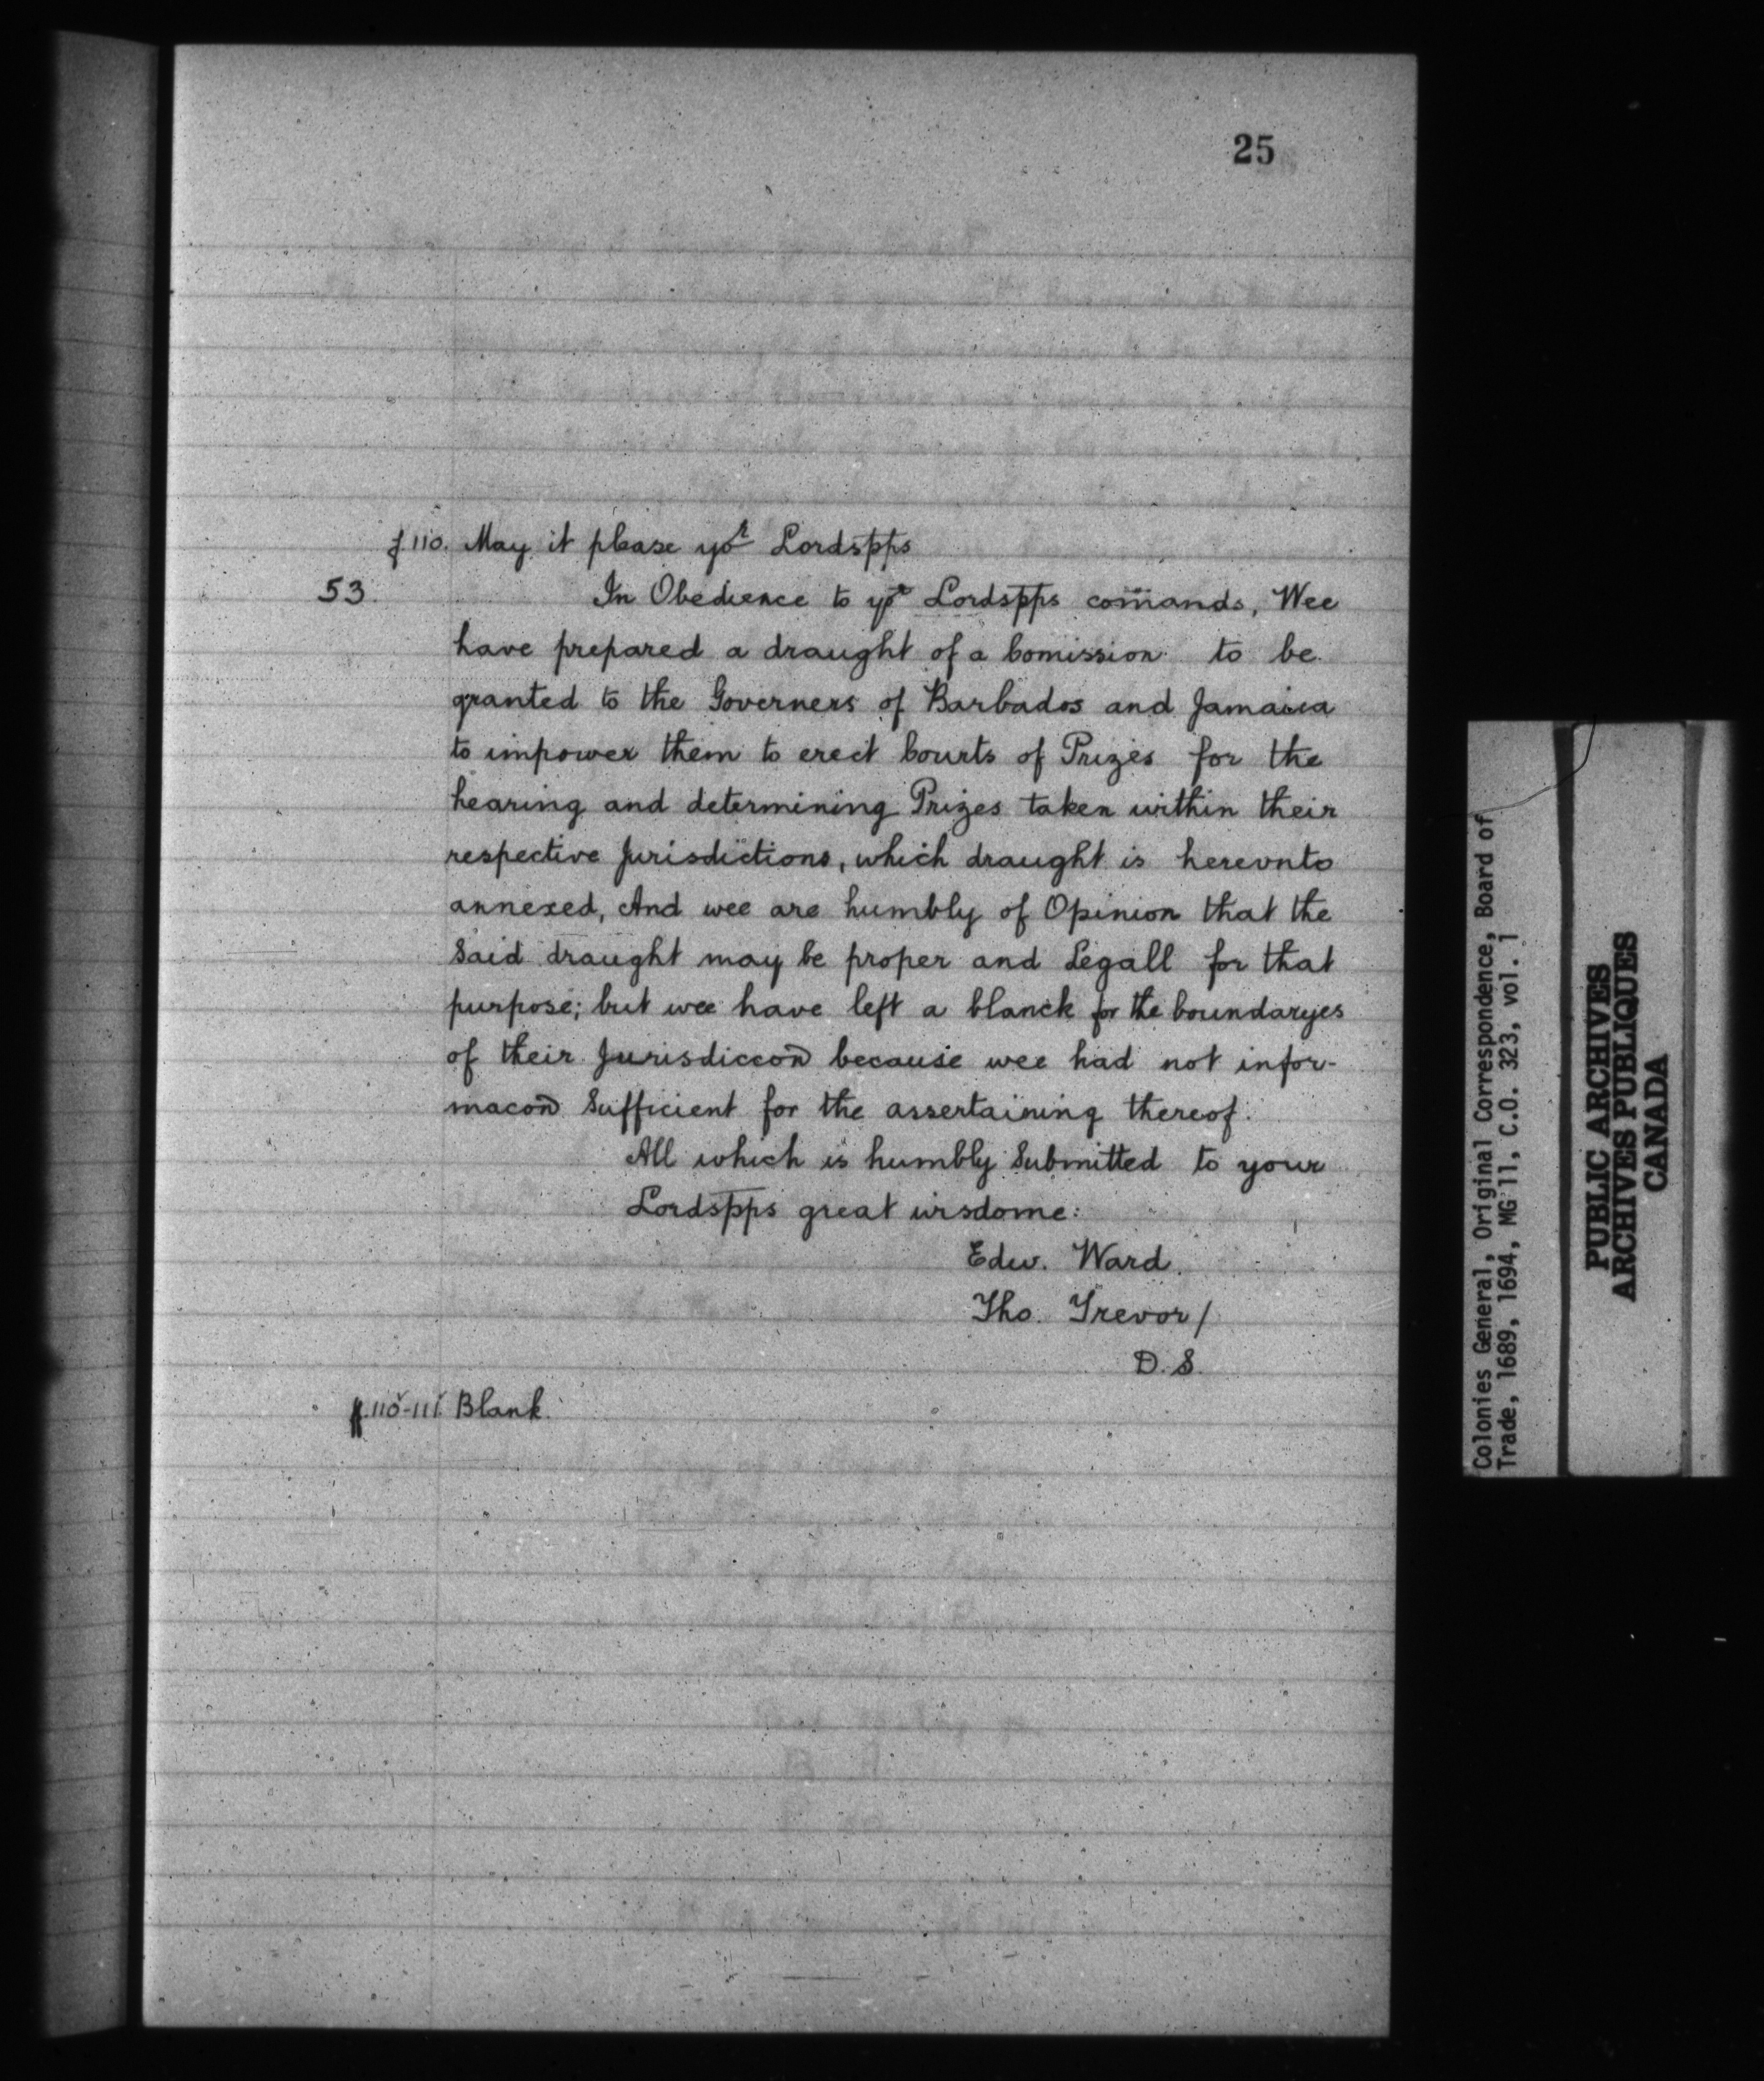 25
f.110. May it please yor Lordspps
53. In Obedience to yor Lordspps comands, Wee
have prepared a draught of a Comission to be
granted to the Governers of Barbados and Jamaica
to impower them to erect Courts of Prizes for the
hearing and determining Prizes taken within their
respective Jurisdictions, which draught is herevnto
annexed, And wee are humbly of Opinion that the
Said draught may be proper and Legall for that
purpose; but wee have left a blanck for the boundaryes
of their Jurisdiccon because wee had not infor-
macon Sufficient for the assertaining thereof.
All which is humbly Submitted to your
Lordspps great wisdome:
Edw. Ward.
Tho. Trevor/
D. S.
ff.110v-111v Blank.
Colonies General, Original Correspondence, Board of
Trade, 1689, 1694, MG 11, C.O. 323, vol. 1
PUBLIC ARCHIVES
ARCHIVES PUBLIQUES
CANADA